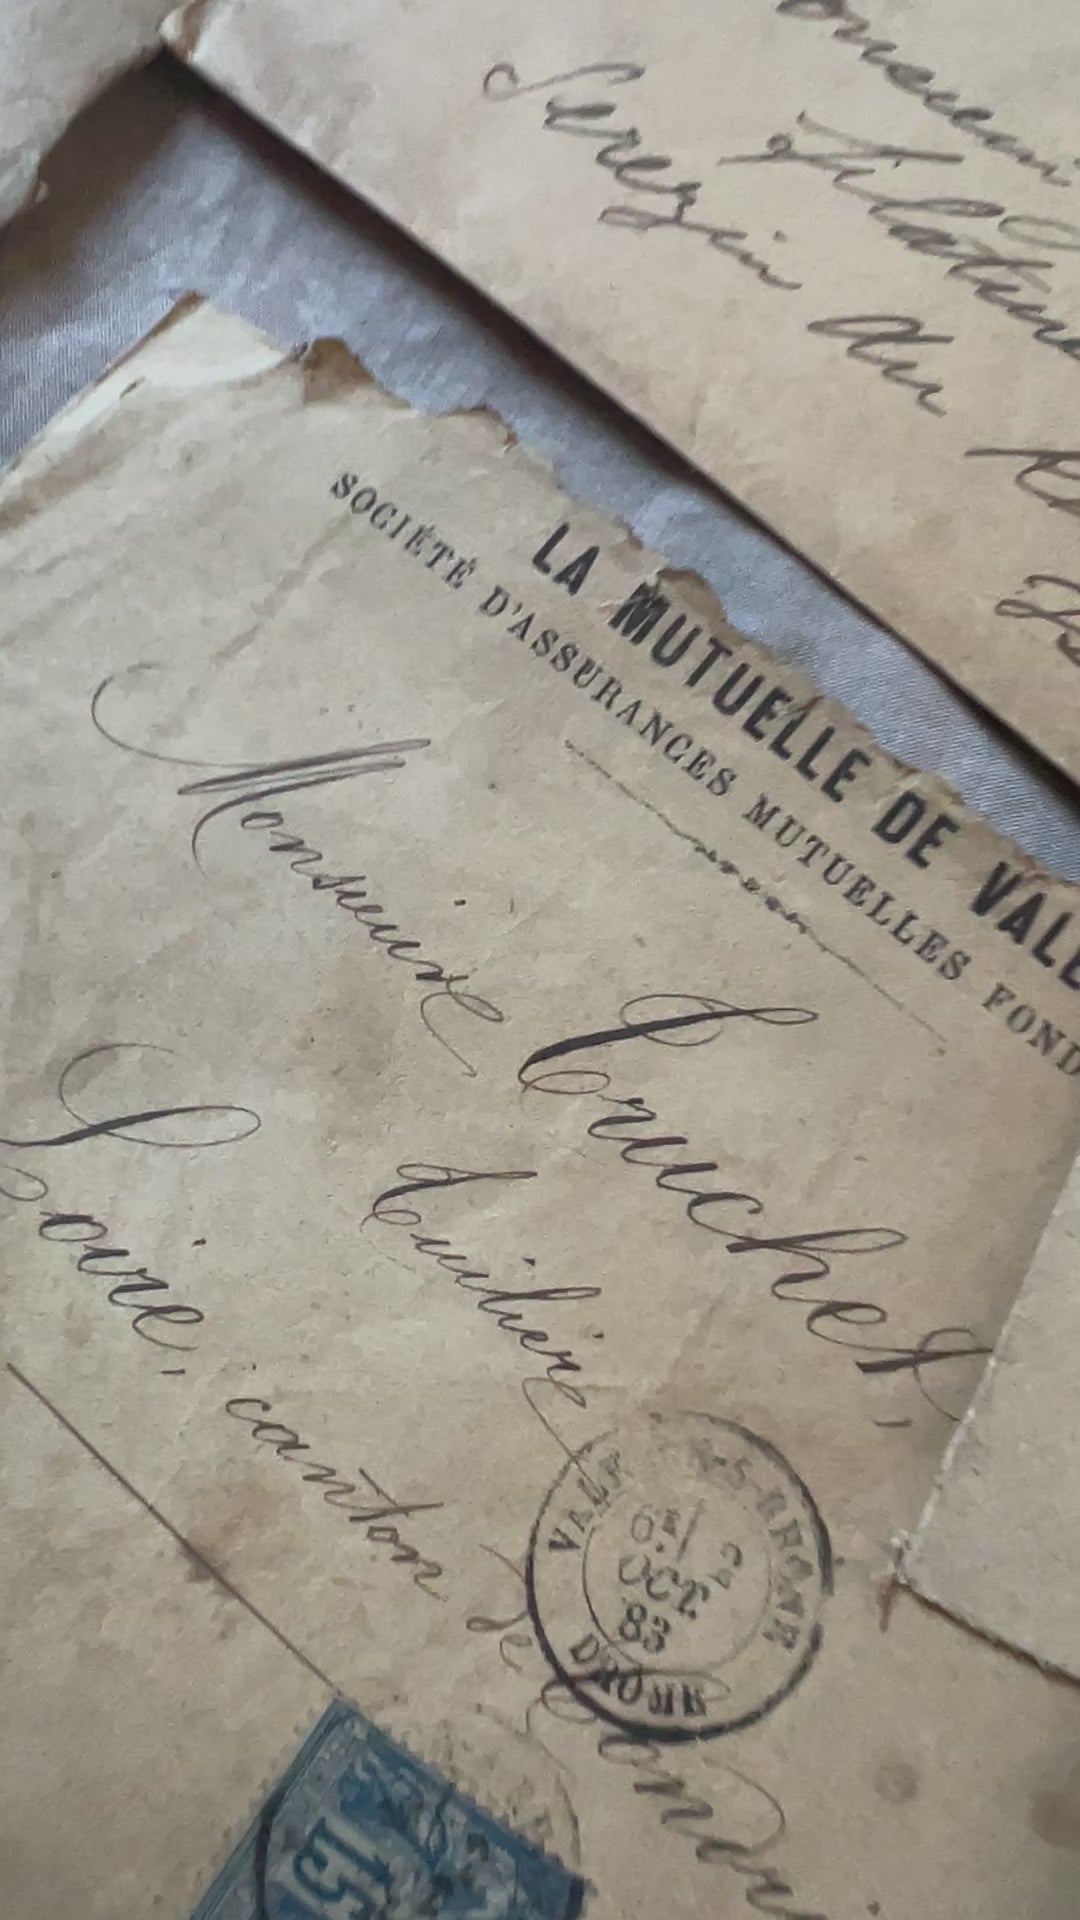 Serezin du
LA MUTUELLE DE VALE
SOCIÉTÉ D'ASSURANCES MUTUELLES FOND
Monsieur Truchet,
Tuilier
Loire, canton de
VALENCE-S-RHONE
6E
OCT
83
DROME
15